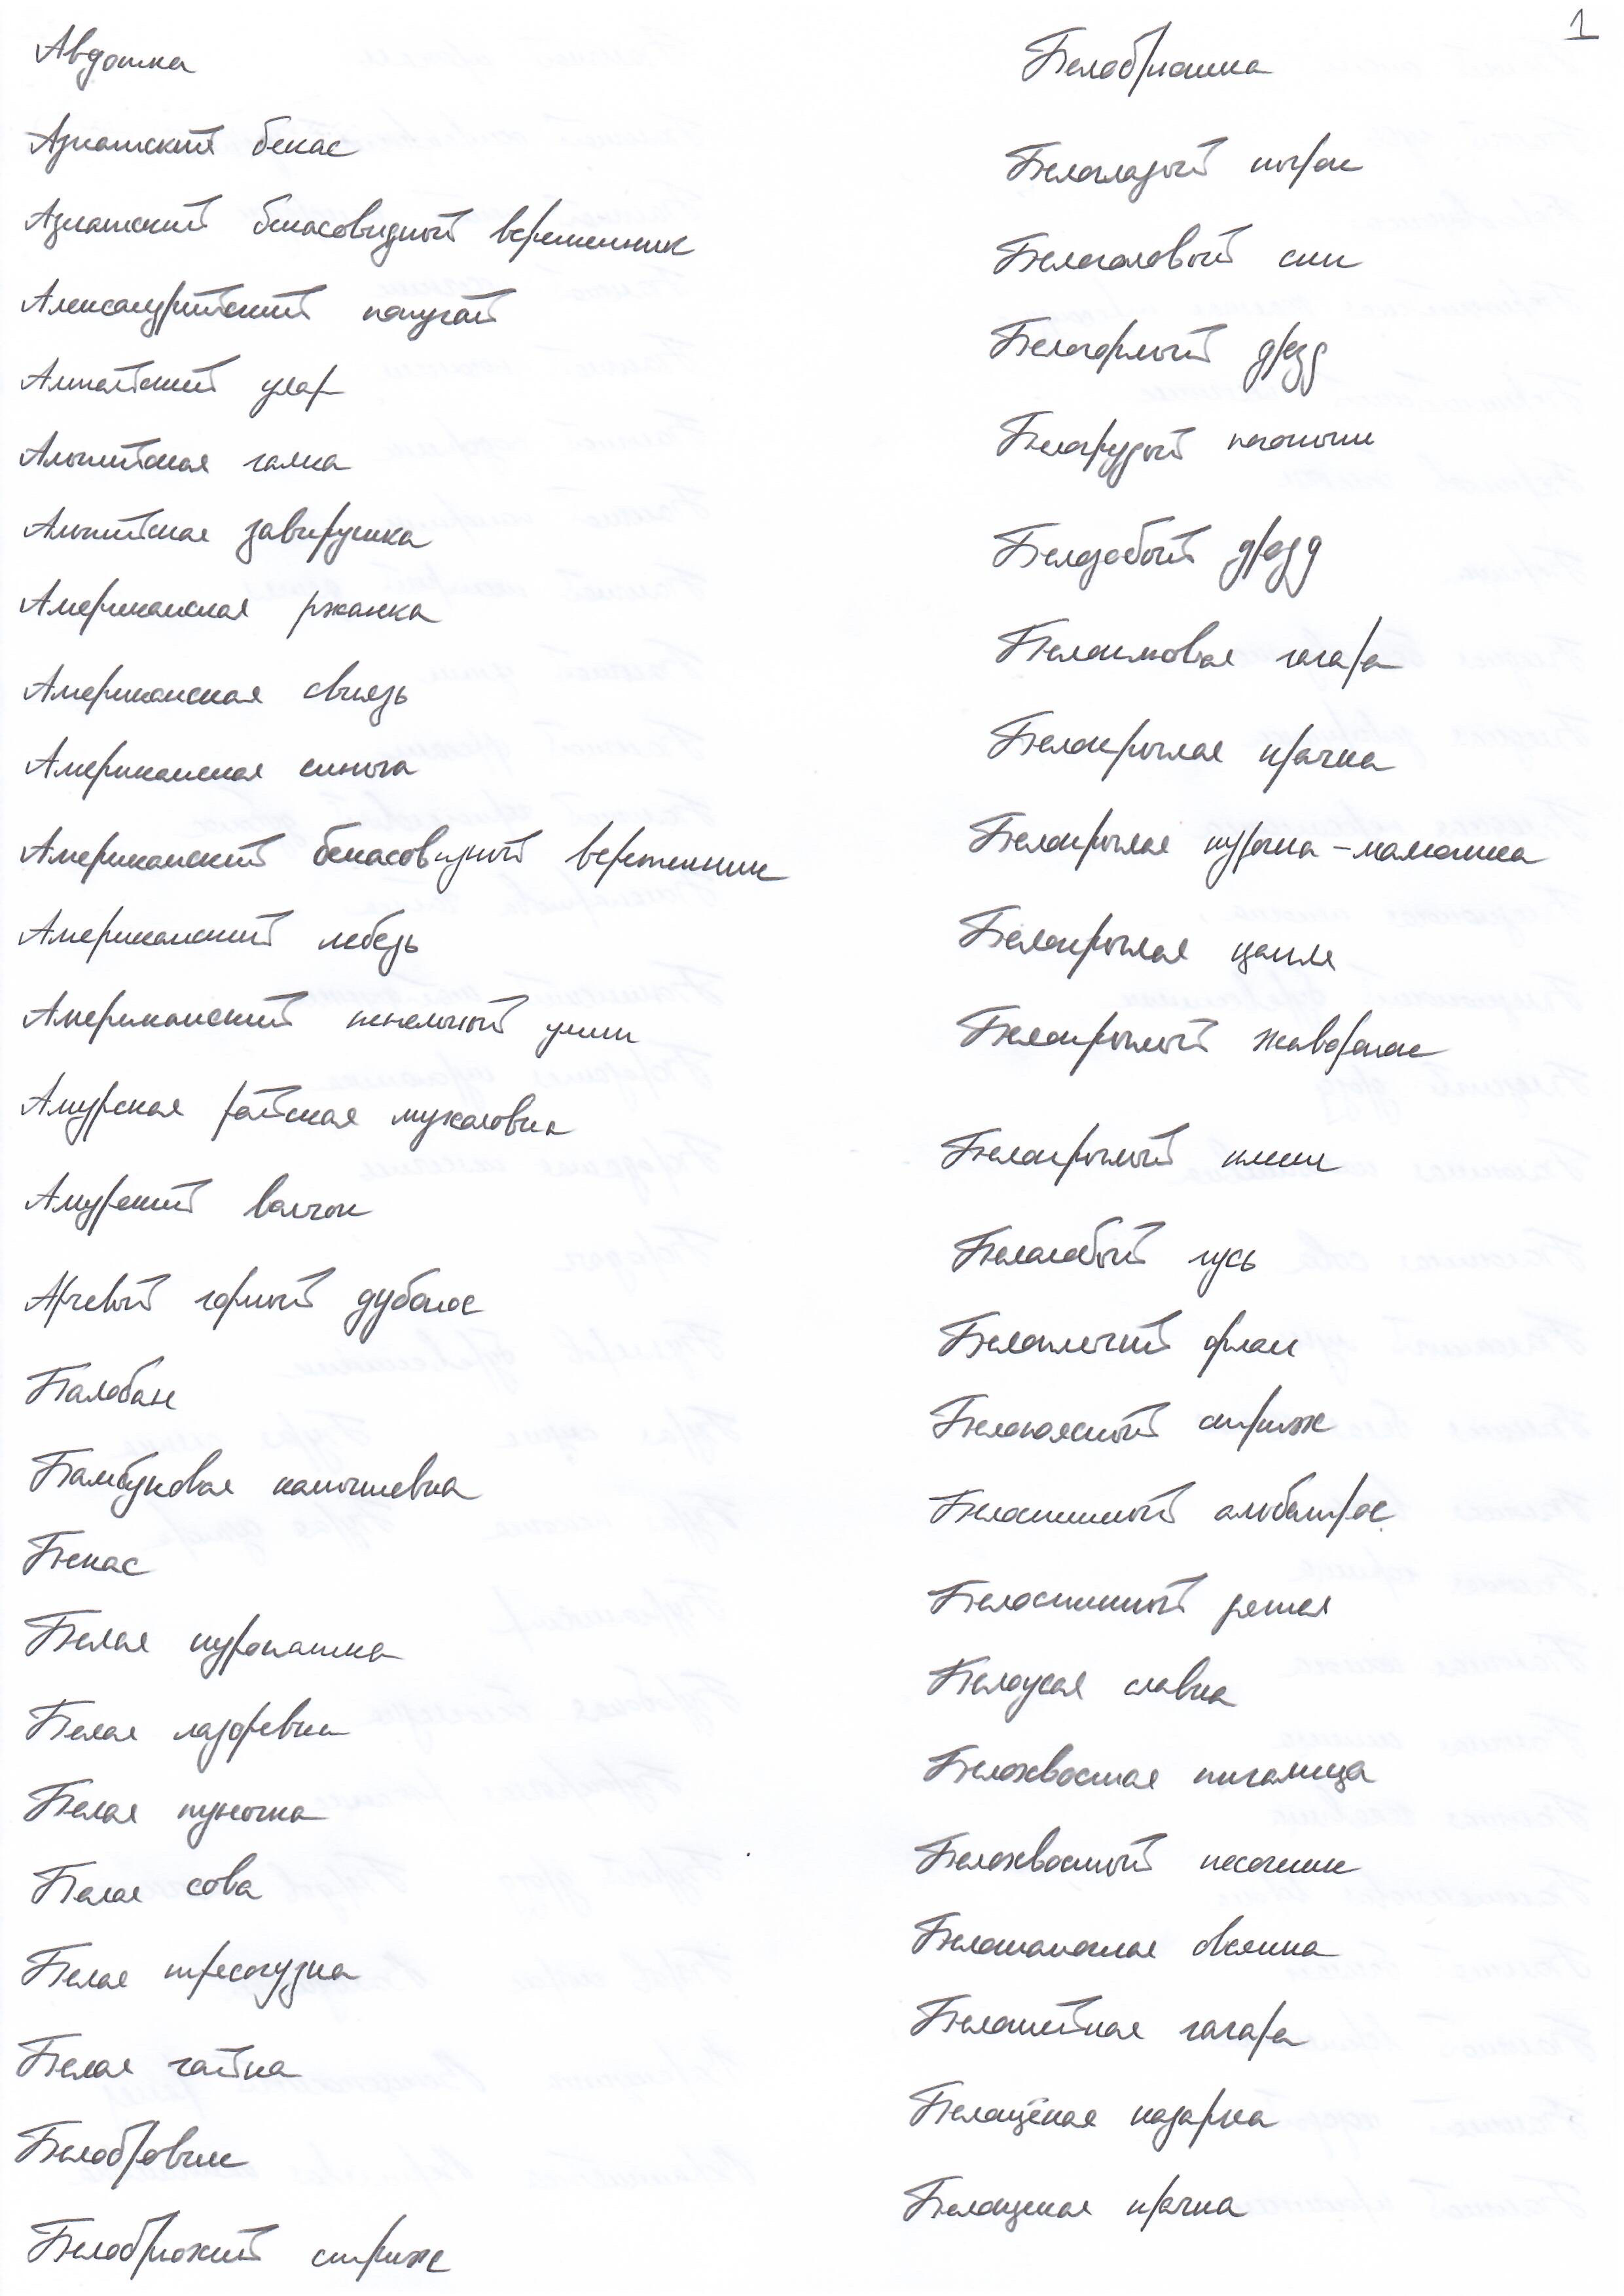 Авдотка
Азиатский бекас
Азиатский бекасовидный веретенник
Александрийский попугай
Алтайский улар
Альпийская галка
Альпийская завирушка
Американская ржанка
Американская свиязь
Американская синьга
Американский бекасовидный веретенник
Американский лебедь
Американский пепельный улит
Амурская райская мухоловка
Амурский волчок
Арчевый горный дубонос
Балобан
Бамбуковая камышевка
Бекас
Белая куропатка
Белая лазоревка
Белая пуночка
Белая сова
Белая трясогузка
Белая чайка
Белобровик
Белобрюхий стриж
1
Белобрюшка
Белоглазый нырок
Белоголовый сип
Белогорлый дрозд
Белогрудый погоныш
Белозобый дрозд
Белоклювая гагара
Белокрылая крачка
Белокрылая курочка-малютка
Белокрылая цапля
Белокрылый жаворонок
Белокрылый клест
Белолобый гусь
Белоплечий орлан
Белопоясный стриж
Белоспинный альбатрос
Белоспинный дятел
Белоусая славка
Белохвостая пигалица
Белохвостый песочник
Белошапочная овсянка
Белошейная гагара
Белощёкая казарка
Белощекая крачка